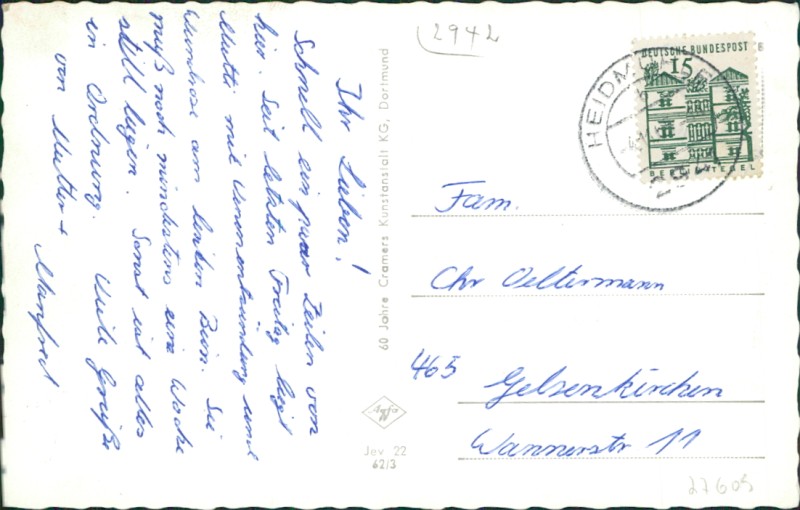 2942
Ihr Lieben!
Schnell ein paar Zeilen von
hier. Seit letzten Freitag liegt
Mutti mit Venenentzündung und
Wundrose am linken Bein. Sie
muß noch mindestens eine Woche
still liegen. Sonst ist alles
in Ordnung. Viele Grüße
von Mutter +
Manfred
60 Jahre Cramers Kunstanstalt KG, Dortmund
Jev 22
62/3
DEUTSCHE BUNDESPOST
15
BERLIN TEGEL
HEIDMÜHLE
294
Fam.
Chr Oeltermann
465 Gelsenkirchen
Wannerstr 11
27605